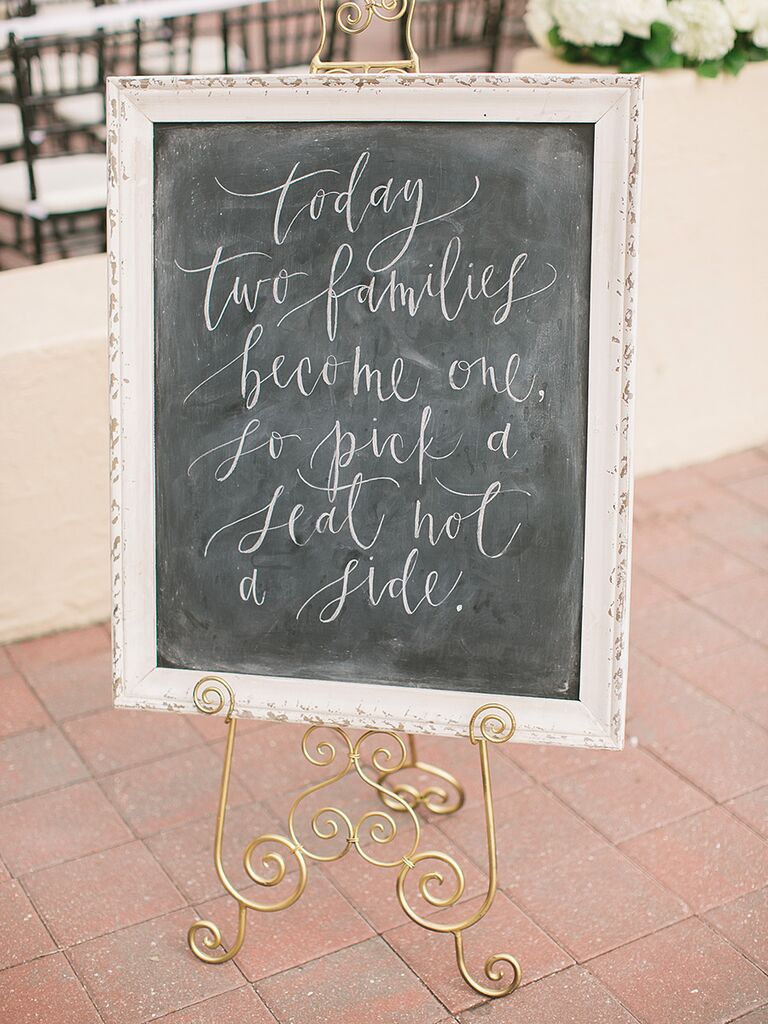 today
two families
become one,
so pick a
seat not
a side.